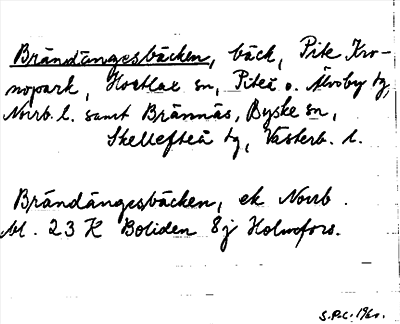 Brändängesbäcken, bäck, Pite Kro-
nopark, Hortlax sn, Piteå o. Älvsby tg,
Norrb. l. samt Brännäs, Byske sn,
Skellefteå tg, Västerb. l.
Brändängesbäcken, ek Norrb.
bl. 23 K Boliden 8j Holmfors.
S.P.C. 1960.